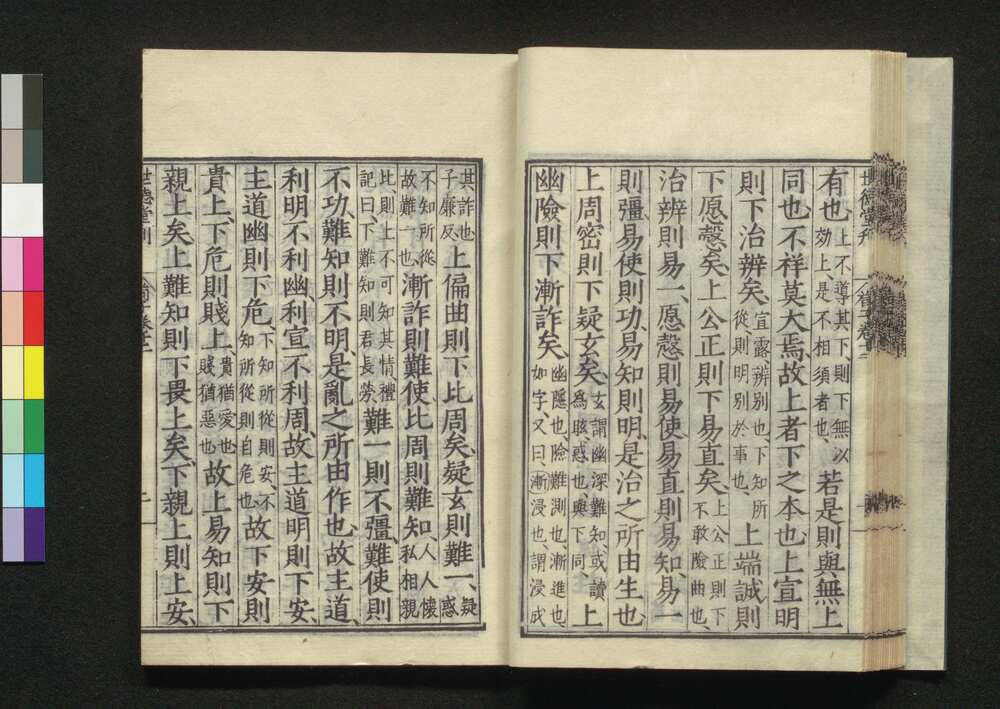 世德堂刊
有也上不導其下、則下無以効上、是不相須者也、若是則與無上
同也、不祥莫大焉、故上者下之本也、上宣明
則下治辨矣、宣露、辨別也、下知所從、則明別於事也、上端誠則
下愿愨矣、上公正則下易直矣、上公正則下不敢險曲也、
治辨則易一、愿愨則易使、易直則易知、易一
則彊、易使則功、易知則明、是治之所由生也
上周密則下疑玄矣、玄謂幽深難知、或讀為眩惑也、與下同、上
幽險則下漸詐矣、幽隱也、險難測也、漸進也、如字、又曰、漸浸也、謂浸成
其詐也子廉反上偏曲則下比周矣、疑玄則難一、疑惑
不知所從故難一也、漸詐則難使、比周則難知、人人懷私相親
比、則上不可知其情、禮記曰、下難知則君長勞、難一則不彊、難使則
不功、難知則不明、是亂之所由作也、故主道、
利明不利幽、利宣不利周、故主道明則下安、
主道幽則下危、下知所從則安、不知所從則自危也、故下安則
貴上、下危則賤上、貴猶愛也賤猶惡也故上易知則下
親上矣、上難知則下畏上矣、下親上則上安、
世德堂刊